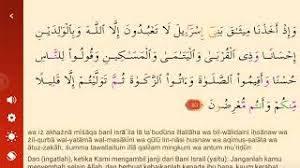 وَإِذْ أَخَذْنَا مِيثَٰقَ بَنِىٓ إِسْرَٰٓءِيلَ لَا تَعْبُدُونَ إِلَّا ٱللَّهَ وَبِٱلْوَٰلِدَيْنِ
إِحْسَانًا وَذِى ٱلْقُرْبَىٰ وَٱلْيَتَٰمَىٰ وَٱلْمَسَٰكِينِ وَقُولُوا۟ لِلنَّاسِ
حُسْنًا وَأَقِيمُوا۟ ٱلصَّلَوٰةَ وَءَاتُوا۟ ٱلزَّكَوٰةَ ثُمَّ تَوَلَّيْتُمْ إِلَّا قَلِيلًا
مِّنكُمْ وَأَنتُم مُّعْرِضُونَ
wa iż akhażnā mīṡāqa banī isrā`īla lā ta'budụna illallāha wa bil-wālidaini iḥsānaw
wa żil-qurbā wal-yatāmā wal-masākīni wa qụlụ lin-nāsi ḥusnaw wa aqīmuṣ-ṣalāta wa
ātuz-zakāh, ṡumma tawallaitum illā qalīlam mingkum wa antum mu'riḍụn
Dan (ingatlah), ketika Kami mengambil janji dari Bani Israil (yaitu): Janganlah kamu
menyembah selain Allah, dan berbuat kebaikanlah kepada ibu bapa,